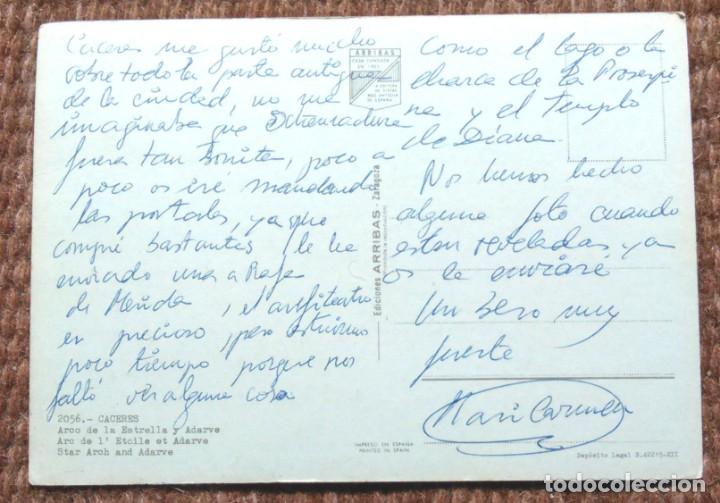 Caceres me gustó mucho
sobre todo la parte antigua
de la ciudad, no me
imaginaba que Extremadura
fuera tan Bonita, poco a
poco os iré mandando
las postales, ya que
compré bastantes, le he
enviado una a Rafa
de Merida, el anfiteatro
es precioso, pero estuvimos
poco tiempo porque nos
faltó ver alguna cosa
2056.- CACERES
Arco de la Estrella y Adarve
Arc de l'Etoile et Adarve
Star Arch and Adarve
ARRIBAS
CASA FUNDADA
Ediciones ARRIBAS - Zaragoza
como el lago o la
charca de la Proserpi
na y el Templo
de Diana.
Nos hemos hecho
alguna foto cuando
estan reveladas ya
os la enviaré
Un beso muy
fuerte
Mari Carmen
IMPRESO EN ESPAÑA
PRINTED IN SPAIN
Depósito Legal B.42215-XII
todocoleccion.net